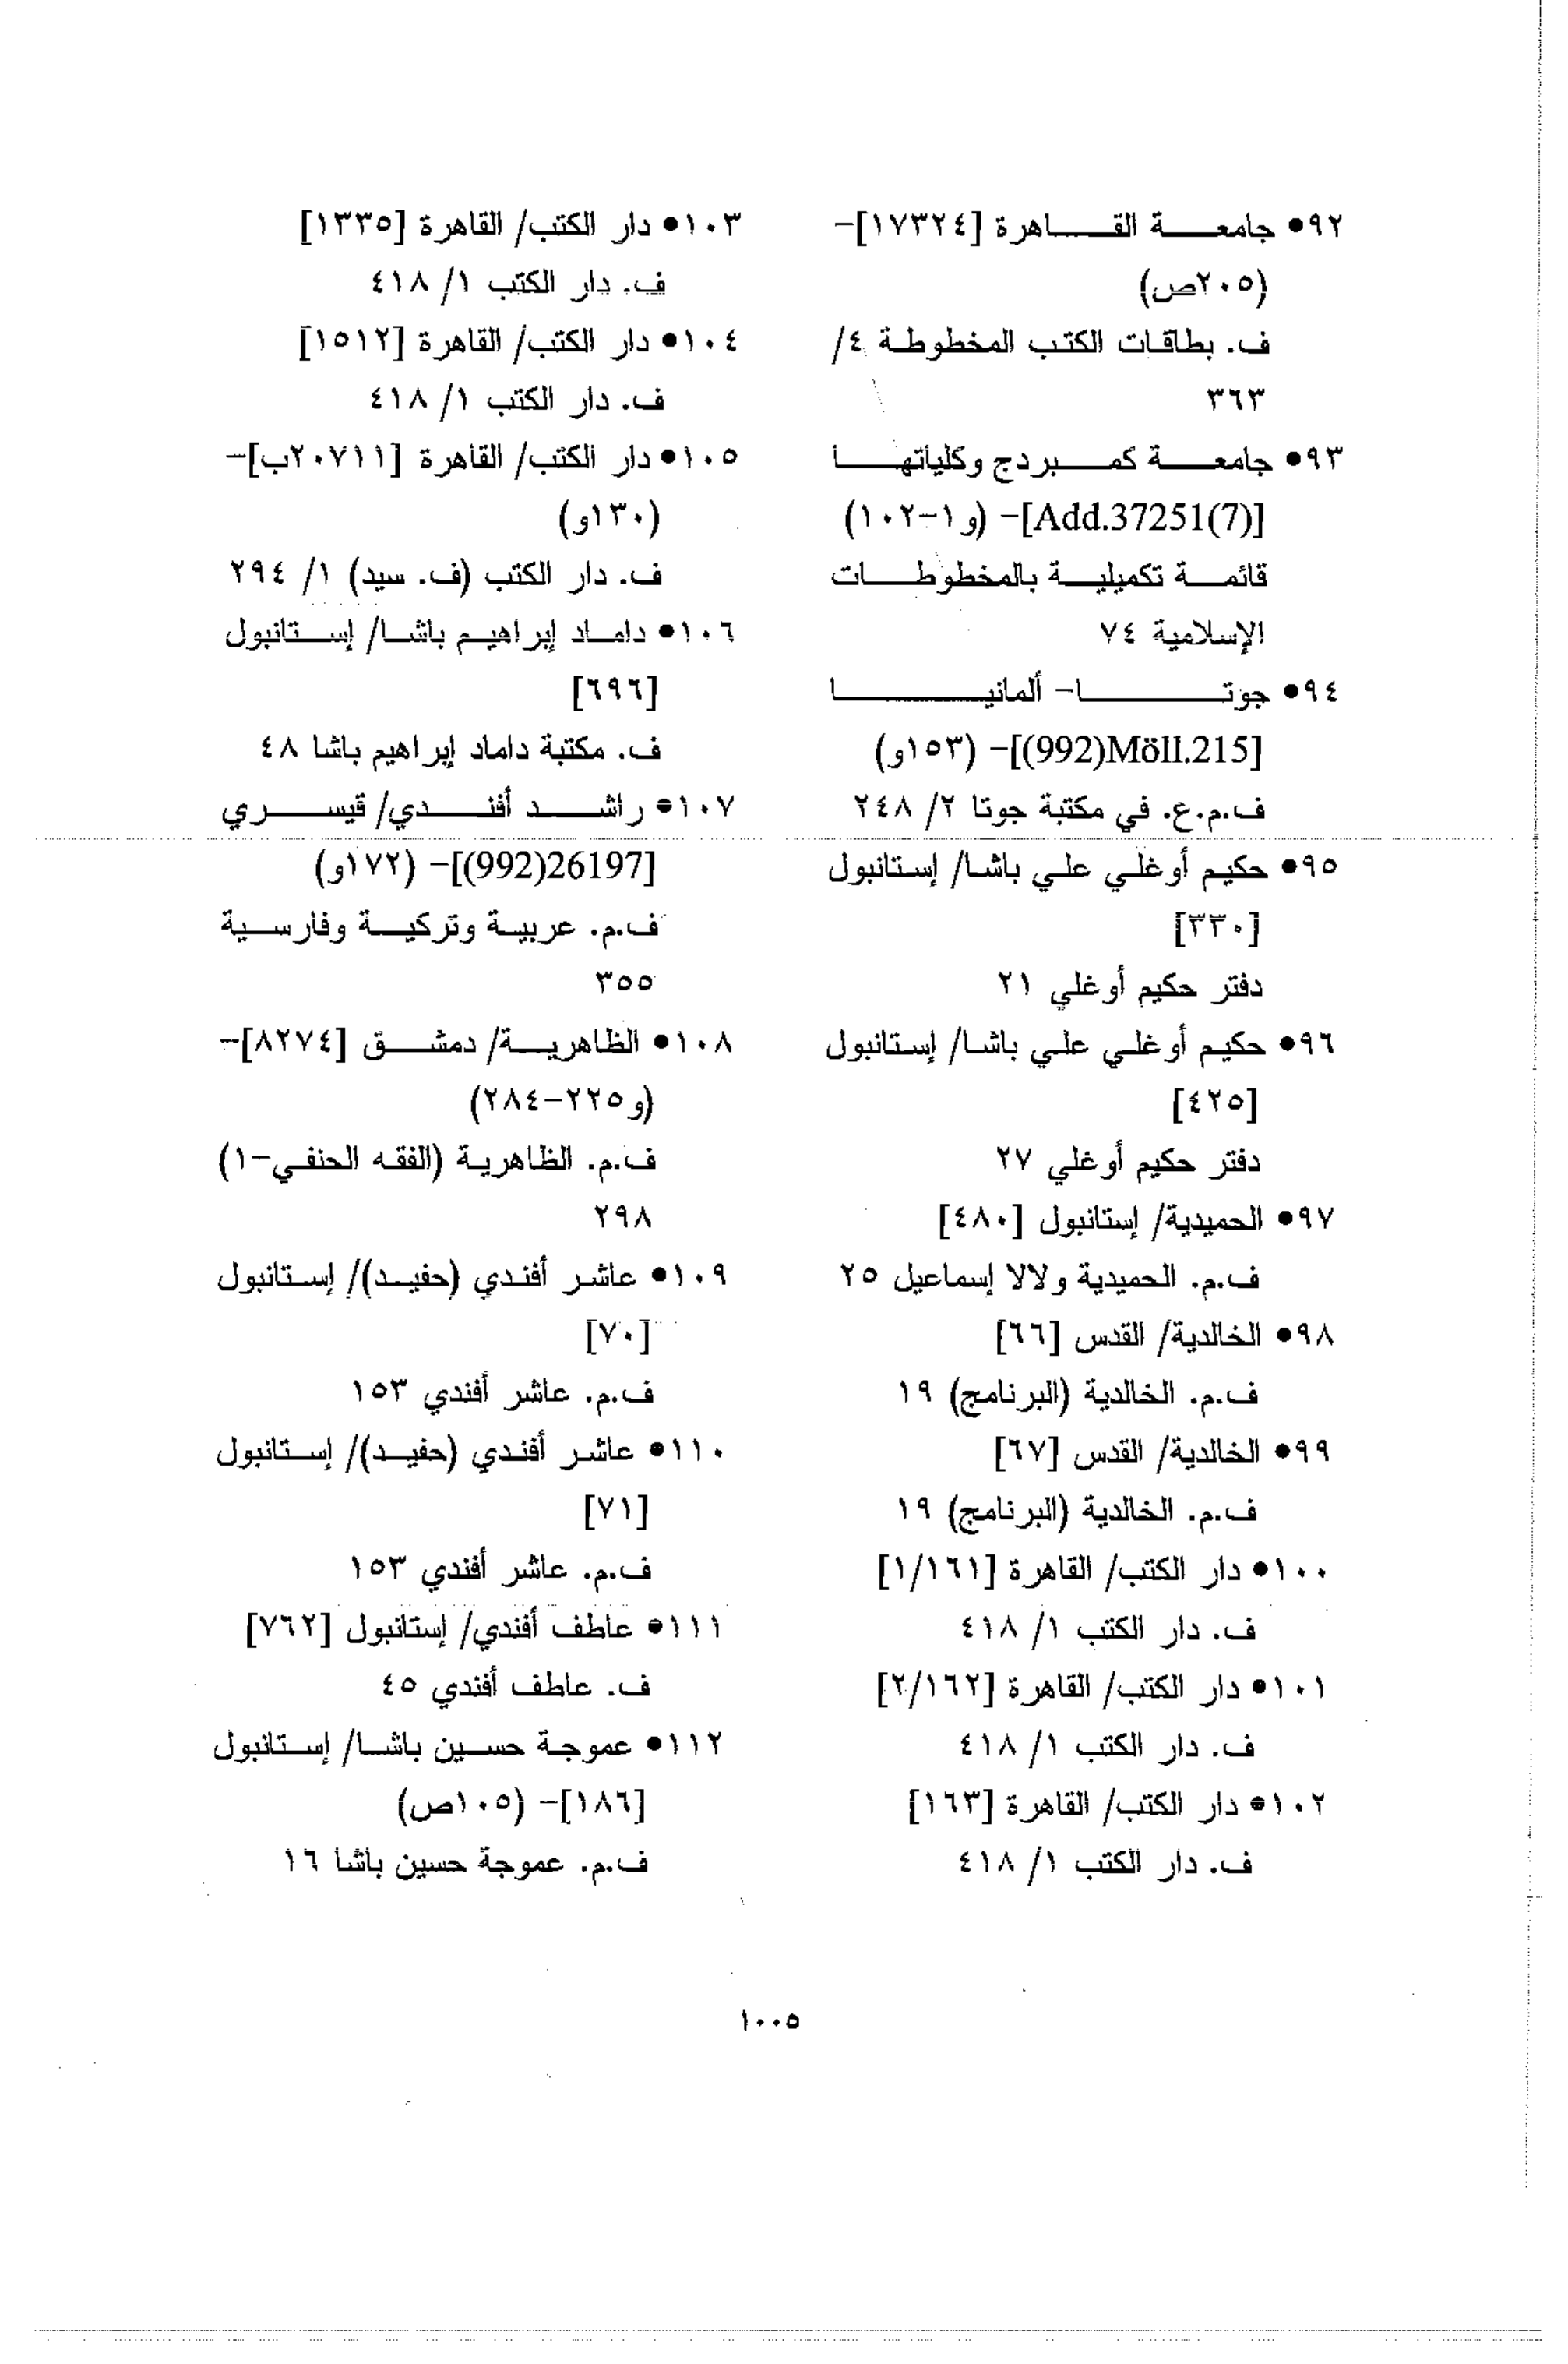 ٩٢● جامعة القاهرة [١٧٣٢٤]-
(٢٠٥ص)
ف. بطاقات الكتب المخطوطة ٤/
٣٦٣
٩٣● جامعة كمبردج وكلياتها
[Add.37251(7)]- (و١-١٠٢)
قائمة تكميلية بالمخطوطات
الإسلامية ٧٤
٩٤● جوتا- ألمانيا
[992)Möll.215)]- (١٥٣و)
ف.م.ع. في مكتبة جوتا ٢/ ٢٤٨
٩٥● حكيم أوغلي علي باشا/ إستانبول
[٣٣٠]
دفتر حكيم أوغلي ٢١
٩٦● حكيم أوغلي علي باشا/ إستانبول
[٤٢٥]
دفتر حكيم أوغلي ٢٧
٩٧● الحميدية/ إستانبول [٤٨٠]
ف.م. الحميدية ولالا إسماعيل ٢٥
٩٨● الخالدية/ القدس [٦٦]
ف.م. الخالدية (البرنامج) ١٩
٩٩● الخالدية/ القدس [٦٧]
ف.م. الخالدية (البرنامج) ١٩
١٠٠● دار الكتب/ القاهرة [١/١٦١]
ف. دار الكتب ١/ ٤١٨
١٠١● دار الكتب/ القاهرة [٢/١٦٢]
ف. دار الكتب ١/ ٤١٨
١٠٢● دار الكتب/ القاهرة [١٦٣]
ف. دار الكتب ١/ ٤١٨
١٠٣● دار الكتب/ القاهرة [١٣٣٥]
ف. دار الكتب ١/ ٤١٨
١٠٤● دار الكتب/ القاهرة [١٥١٢]
ف. دار الكتب ١/ ٤١٨
١٠٥● دار الكتب/ القاهرة [٢٠٧١١ب]-
(١٣٠و)
ف. دار الكتب (ف. سيد) ١/ ٢٩٤
١٠٦● داماد إبراهيم باشا/ إستانبول
[٦٩٦]
ف. مكتبة داماد إبراهيم باشا ٤٨
١٠٧● راشد أفندي/ قيسري
[992)26197)]- (١٧٢و)
ف.م. عربية وتركية وفارسية
٣٥٥
١٠٨● الظاهرية/ دمشق [٨٢٧٤]-
(و٢٢٥-٢٨٤)
ف.م. الظاهرية (الفقه الحنفي-١)
٢٩٨
١٠٩● عاشر أفندي (حفيد)/ إستانبول
[٧٠]
ف.م. عاشر أفندي ١٥٣
١١٠● عاشر أفندي (حفيد)/ إستانبول
[٧١]
ف.م. عاشر أفندي ١٥٣
١١١● عاطف أفندي/ إستانبول [٧٦٢]
ف. عاطف أفندي ٤٥
١١٢● عموجة حسين باشا/ إستانبول
[١٨٦]- (١٠٥ص)
ف.م. عموجة حسين باشا ١٦
١٠٠٥